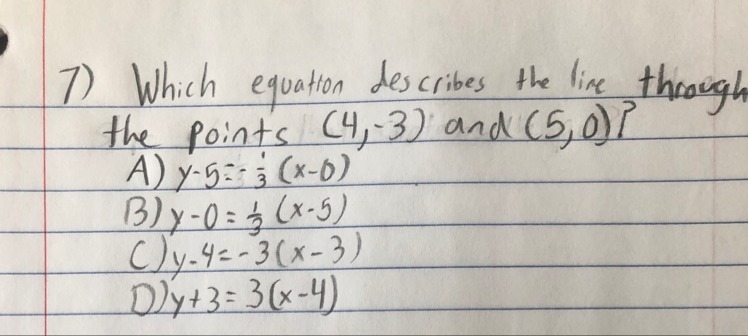 7) Which equation describes the line through
the points (4,-3) and (5,0)?
A) y-5=-1/3 (x-0)
B) y-0=1/3 (x-5)
C) y-4=-3(x-3)
D) y+3=3(x-4)